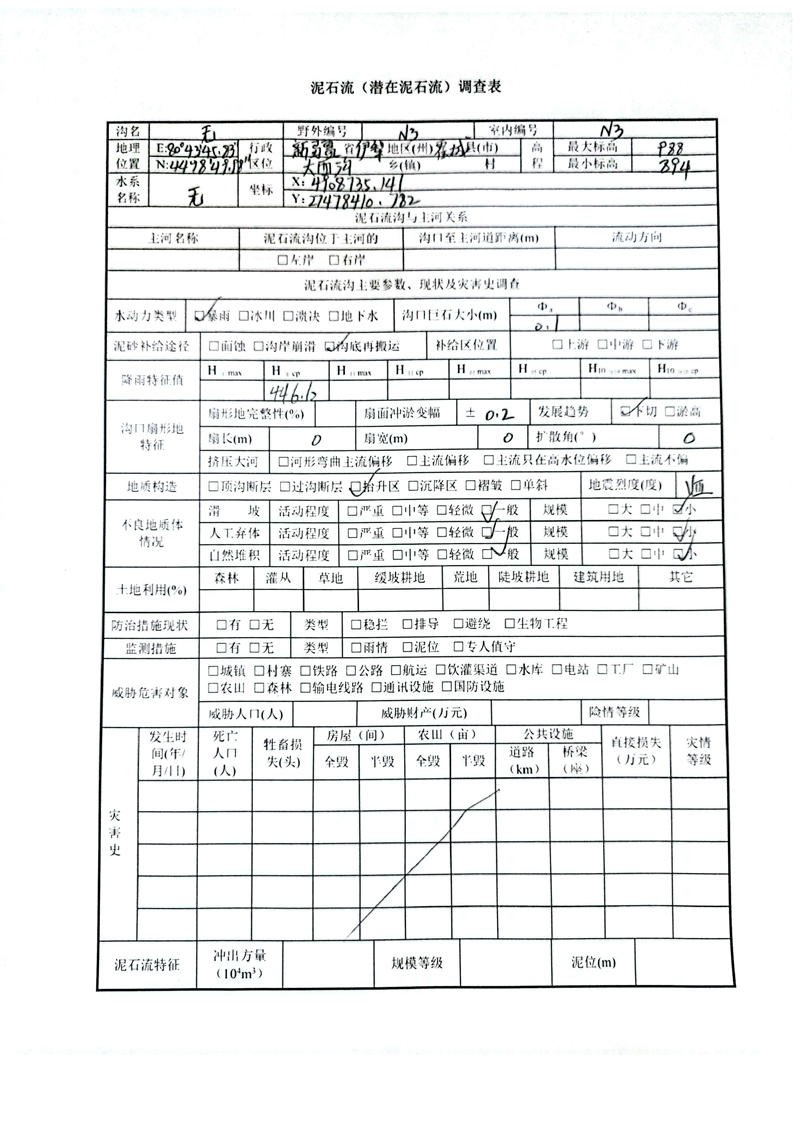 泥石流（潜在泥石流）调查表
沟名 无 野外编号 N3 室内编号 N3
地理位置 E:80°43'45.83" 行政区位 新疆 省 伊犁 地区(州) 霍城 县(市) 高程 最大标高 988
N:44°18'49.18" 大西沟 乡(镇) 村 最小标高 894
水系名称 无 坐标 X: 4908735.141
Y: 27478410.782
泥石流沟与主河关系
主河名称 泥石流沟位于主河的 沟口至主河道距离(m) 流动方向
□左岸 □右岸
泥石流沟主要参数、现状及灾害史调查
水动力类型 ☑暴雨 □冰川 □溃决 □地下水 沟口巨石大小(m) Φa Φb Φc
0.1
泥砂补给途径 □面蚀 □沟岸崩滑 ☑沟底再搬运 补给区位置 □上游 □中游 □下游
降雨特征值 H max H cp H max H cp H max H cp H10 max H10 cp
446.12
沟口扇形地特征 扇形地完整性(%) 扇面冲淤变幅 ± 0.2 发展趋势 ☑下切 □淤高
扇长(m) 0 扇宽(m) 0 扩散角(°) 0
挤压大河 □河形弯曲主流偏移 □主流偏移 □主流只在高水位偏移 □主流不偏
地质构造 □顶沟断层 □过沟断层 ☑抬升区 □沉降区 □褶皱 □单斜 地震烈度(度) Ⅷ
不良地质体情况 滑 坡 活动程度 □严重 □中等 □轻微 ☑一般 规模 □大 □中 ☑小
人工弃体 活动程度 □严重 □中等 □轻微 ☑一般 规模 □大 □中 ☑小
自然堆积 活动程度 □严重 □中等 □轻微 ☑一般 规模 □大 □中 ☑小
土地利用(%) 森林 灌丛 草地 缓坡耕地 荒地 陡坡耕地 建筑用地 其它
防治措施现状 □有 □无 类型 □稳拦 □排导 □避绕 □生物工程
监测措施 □有 □无 类型 □雨情 □泥位 □专人值守
威胁危害对象 □城镇 □村寨 □铁路 □公路 □航运 □饮灌渠道 □水库 □电站 □工厂 □矿山
□农田 □森林 □输电线路 □通讯设施 □国防设施
威胁人口(人) 威胁财产(万元) 险情等级
灾害史 发生时间(年/月/日) 死亡人口(人) 牲畜损失(头) 房屋（间） 农田（亩） 公共设施 直接损失（万元） 灾情等级
全毁 半毁 全毁 半毁 道路（km） 桥梁（座）
泥石流特征 冲出方量（10⁴m³） 规模等级 泥位(m)